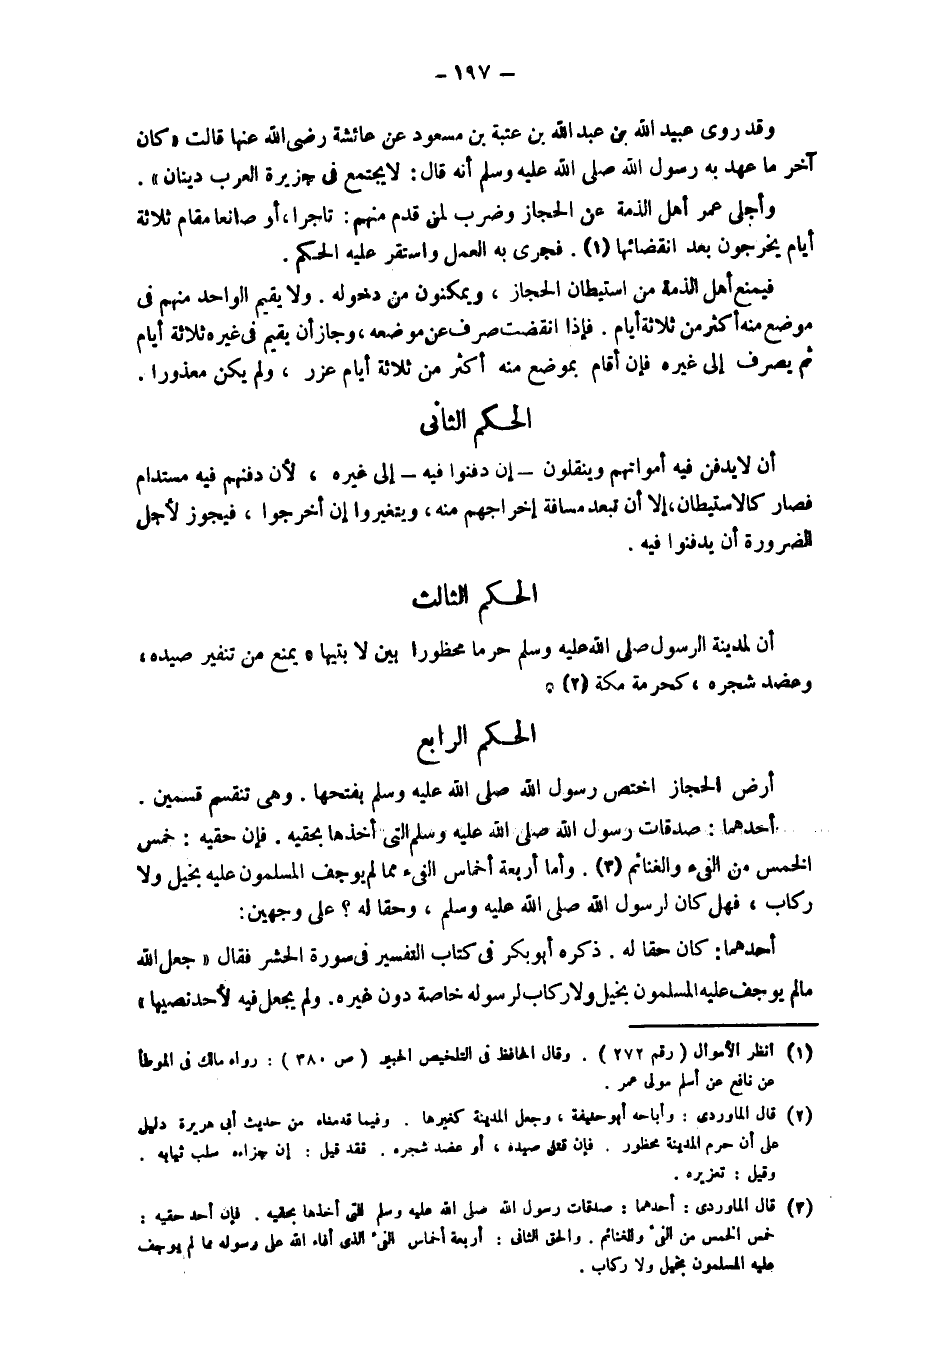 — ١٩٧ —
وقد روى عبيد الله بن عبد الله بن عتبة بن مسعود عن عائشة رضى الله عنها قالت «كان
آخر ما عهد به رسول الله صلى الله عليه وسلم أنه قال: لا يجتمع فى جزيرة العرب دينان» .
وأجلى عمر أهل الذمة عن الحجاز وضرب لمن قدم منهم: تاجرا، أو صانعا مقام ثلاثة
أيام يخرجون بعد انقضائها (١) . فجرى به العمل واستقر عليه الحكم .
فيمنع أهل الذمة من استيطان الحجاز ، ويمكنون من دخوله . ولا يقيم الواحد منهم فى
موضع منه أكثر من ثلاثة أيام . فإذا انقضت صرف عن موضعه، وجاز أن يقيم فى غيره ثلاثة أيام
ثم يصرف إلى غيره فإن أقام بموضع منه أكثر من ثلاثة أيام عزر ، ولم يكن معذورا .
الحكم الثانى
أن لا يدفن فيه أمواتهم وينقلون — إن دفنوا فيه — إلى غيره ، لأن دفنهم فيه مستدام
فصار كالاستيطان، إلا أن تبعد مسافة إخراجهم منه، ويتغيروا إن أخرجوا ، فيجوز لأجل
الضرورة أن يدفنوا فيه .
الحكم الثالث
أن لمدينة الرسول صلى الله عليه وسلم حرما محظورا بين لا بتيها ، يمنع من تنفير صيده،
وعضد شجره ، كحرمة مكة (٢) .
الحكم الرابع
أرض الحجاز اختص رسول الله صلى الله عليه وسلم بفتحها . وهى تنقسم قسمين .
أحدهما : صدقات رسول الله صلى الله عليه وسلم التى أخذها بحقيه . فإن حقيه : خمس
الخمس من الفىء والغنائم (٣) . وأما أربعة أخماس الفىء مما لم يوجف المسلمون عليه بخيل ولا
ركاب ، فهل كان لرسول الله صلى الله عليه وسلم ، وحقا له ؟ على وجهين:
أحدهما: كان حقا له . ذكره أبو بكر فى كتاب التفسير فى سورة الحشر فقال «جعل الله
مالم يوجف عليه المسلمون بخيل ولا ركاب لرسوله خاصة دون غيره. ولم يجعل فيه لأحد نصيبا»
(١) انظر الأموال ( رقم ٢٧٢ ) . وقال الحافظ فى التلخيص الحبير ( ص ٣٨٠ ) : رواه مالك فى الموطأ
عن نافع عن أسلم مولى عمر .
(٢) قال الماوردى : وأباحه أبو حنيفة ، وجعل المدينة كغيرها . وفيما قدمناه من حديث أبى هريرة دليل
على أن حرم المدينة محظور . فإن قتل صيده ، أو عضد شجره . فقد قيل : إن جزاءه سلب ثيابه .
وقيل : تعزيره .
(٣) قال الماوردى : أحدهما : صدقات رسول الله صلى الله عليه وسلم التى أخذها بحقيه . فإن أحد حقيه :
خمس الخمس من الفىء والغنائم . والحق الثانى : أربعة أخماس الفىء الذى أفاء الله على رسوله مما لم يوجف
عليه المسلمون بخيل ولا ركاب .